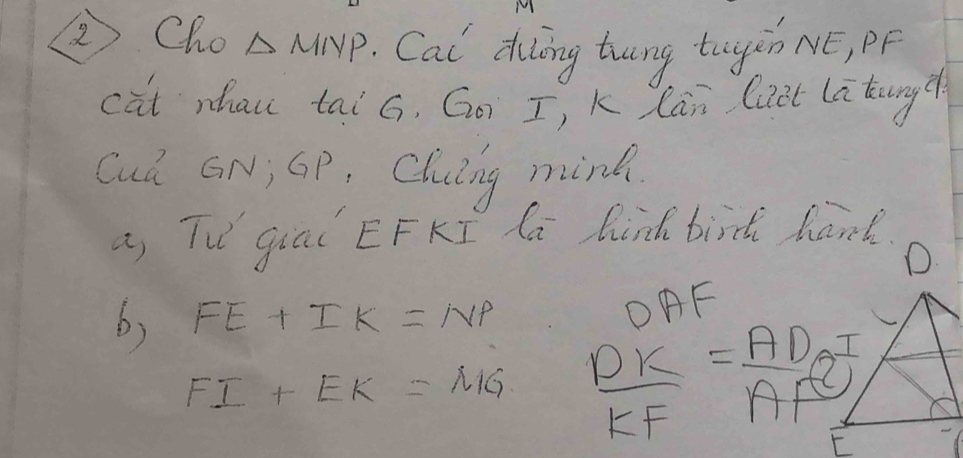 M
2 Cho △ MNP. Các đường trung tuyến NE, PF
cắt nhau tại G. Gọi I, K lần lượt là trung đ
của GN; GP. Chứng minh.
a, Tứ giác EFKI là hình bình hành.
b, FE + IK = NP
FI + EK = MG.
DAF
DK/KF = AD/AF 2
D
I
E